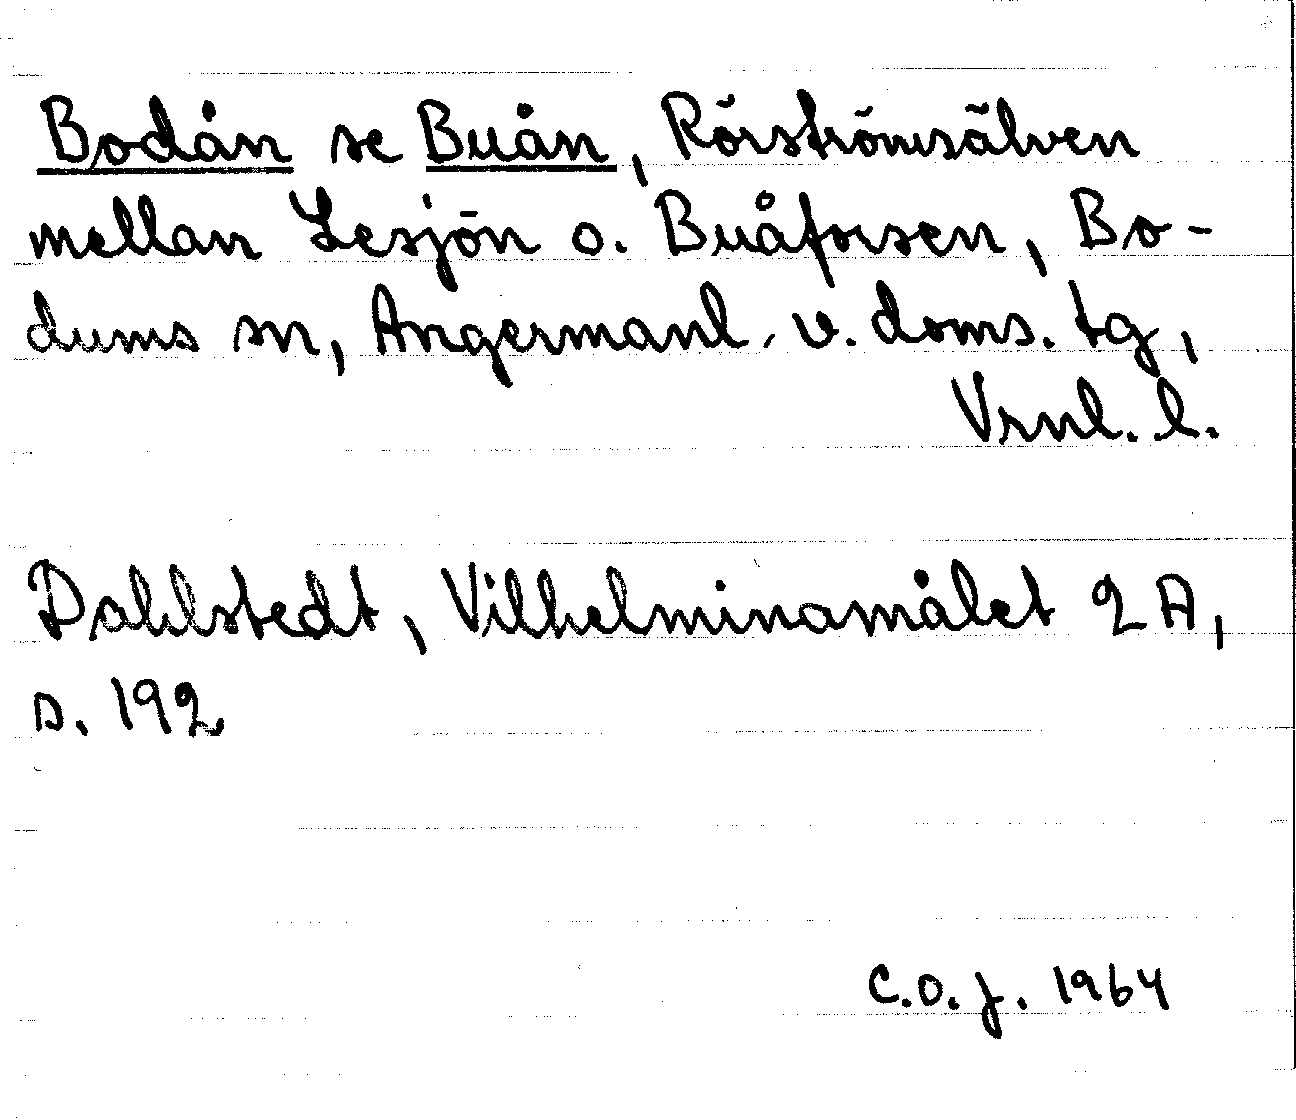 Bodån se Buån, Rörströmsälven
mellan Lesjön o. Buåforsen, Bo-
dums sn, Ångermanl. v. doms. tg,
Vrnl. l.
Dahlstedt, Vilhelminamålet 2A,
s. 192
C.O.J. 1964